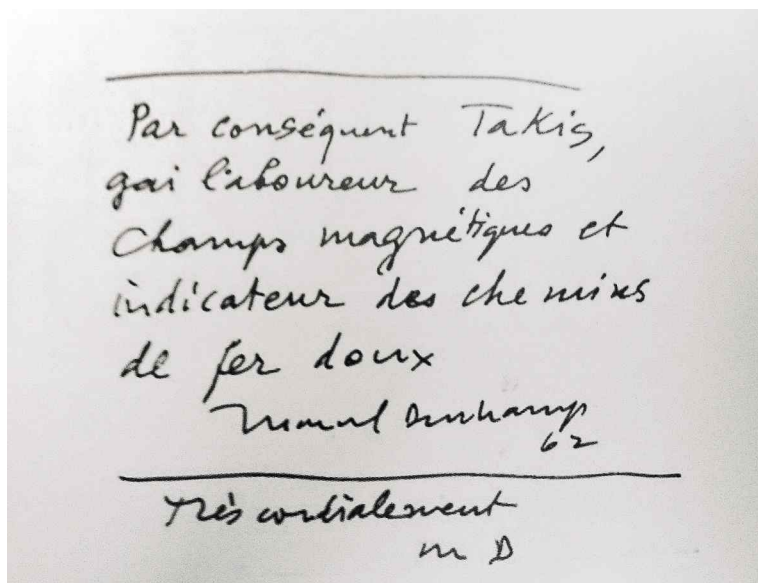 Par conséquent Takis,
gai laboureur des
Champs magnétiques et
indicateur des chemins
de fer doux
Marcel Duchamp
62
très cordialement
m D